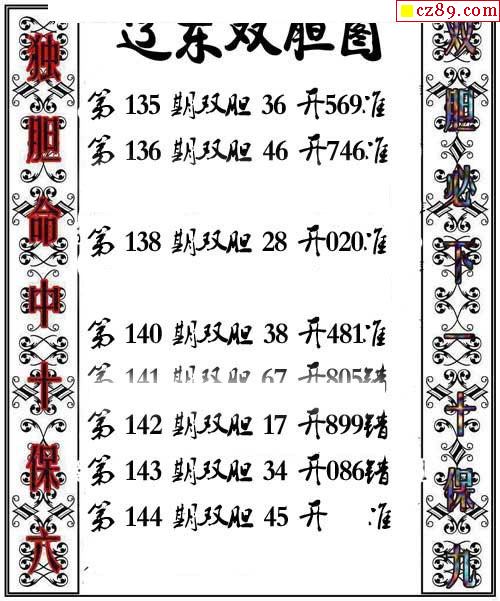 cz89.com
辽东双胆图
独胆命中十保六
第 135 期双胆 36 开569准
第 136 期双胆 46 开746准
第 138 期双胆 28 开020准
第 140 期双胆 38 开481准
第 141 期双胆 67 开805错
第 142 期双胆 17 开899错
第 143 期双胆 34 开086错
第 144 期双胆 45 开 准
双胆必下一十保九